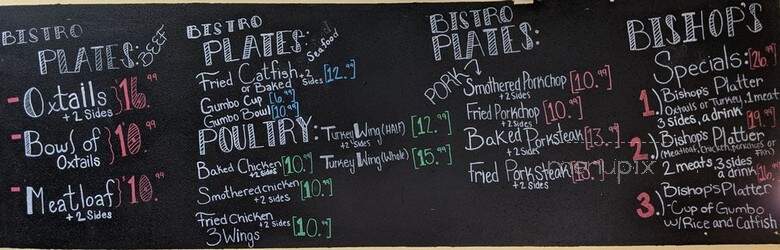 BISTRO
PLATES: BEEF
- Oxtails }16.99
+2 Sides
- Bowl of }10.99
Oxtails
- Meatloaf }10.99
+2 Sides
BISTRO
PLATES: Seafood
Fried Catfish +2 Sides [12.99]
or Baked
Gumbo Cup [6.99]
Gumbo Bowl [10.99]
POULTRY:
Baked Chicken [10.99]
+2 Sides
Smothered chicken [10.99]
+2 Sides
Fried Chicken +2 Sides [10.99]
3 Wings
Turkey Wing (HALF) [12.99]
+2 Sides
Turkey Wing (Whole) [15.99]
BISTRO
PLATES:
PORK
Smothered Porkchop [10.99]
+2 Sides
Fried Porkchop [10.99]
+2 Sides
Baked Porksteak [13.99]
+2 Sides
Fried Porksteak [13.99]
+2 Sides
BISHOP'S
Specials: [26.99]
1.) Bishop's Platter
Oxtails or Turkey, 1 meat
3 sides, a drink [19.99]
2.) Bishop's Platter
(Meatloaf, Chicken, porkchops or Fish)
2 meats, 3 sides
a drink [16.99]
3.) Bishop's Platter
-Cup of Gumbo
w/Rice and Catfish
menupix